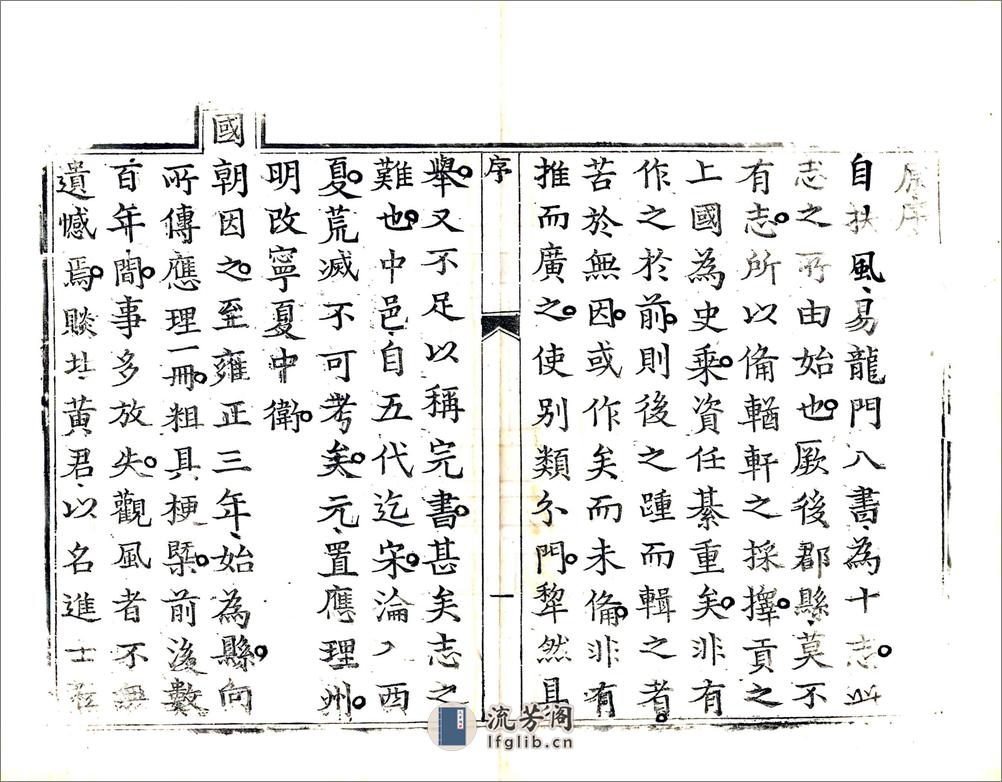 原序
自扶風、易龍門八書、為十志。此
志之所由始也。厥後郡縣、莫不
有志。所以俻輶軒之採擇。貢之
上國為史乘。資任綦重矣。非有
作之於前。則後之踵而輯之者。
苦於無因。或作矣而未俻。非有
推而廣之。使别類分門。犂然具
序
一
舉。又不足以稱完書。甚矣志之
難也。中邑、自五代迄宋。淪入西
夏。荒滅不可考矣。元、置應理州。
明改寧夏中衛。
國朝因之。至雍正三年、始為縣。向
所傳應理一冊。粗具梗槩。前後數
百年、間事多放失。觀風者不無
遺憾焉。賧址、黄君、以名進士
流芳阁
lfglib.cn